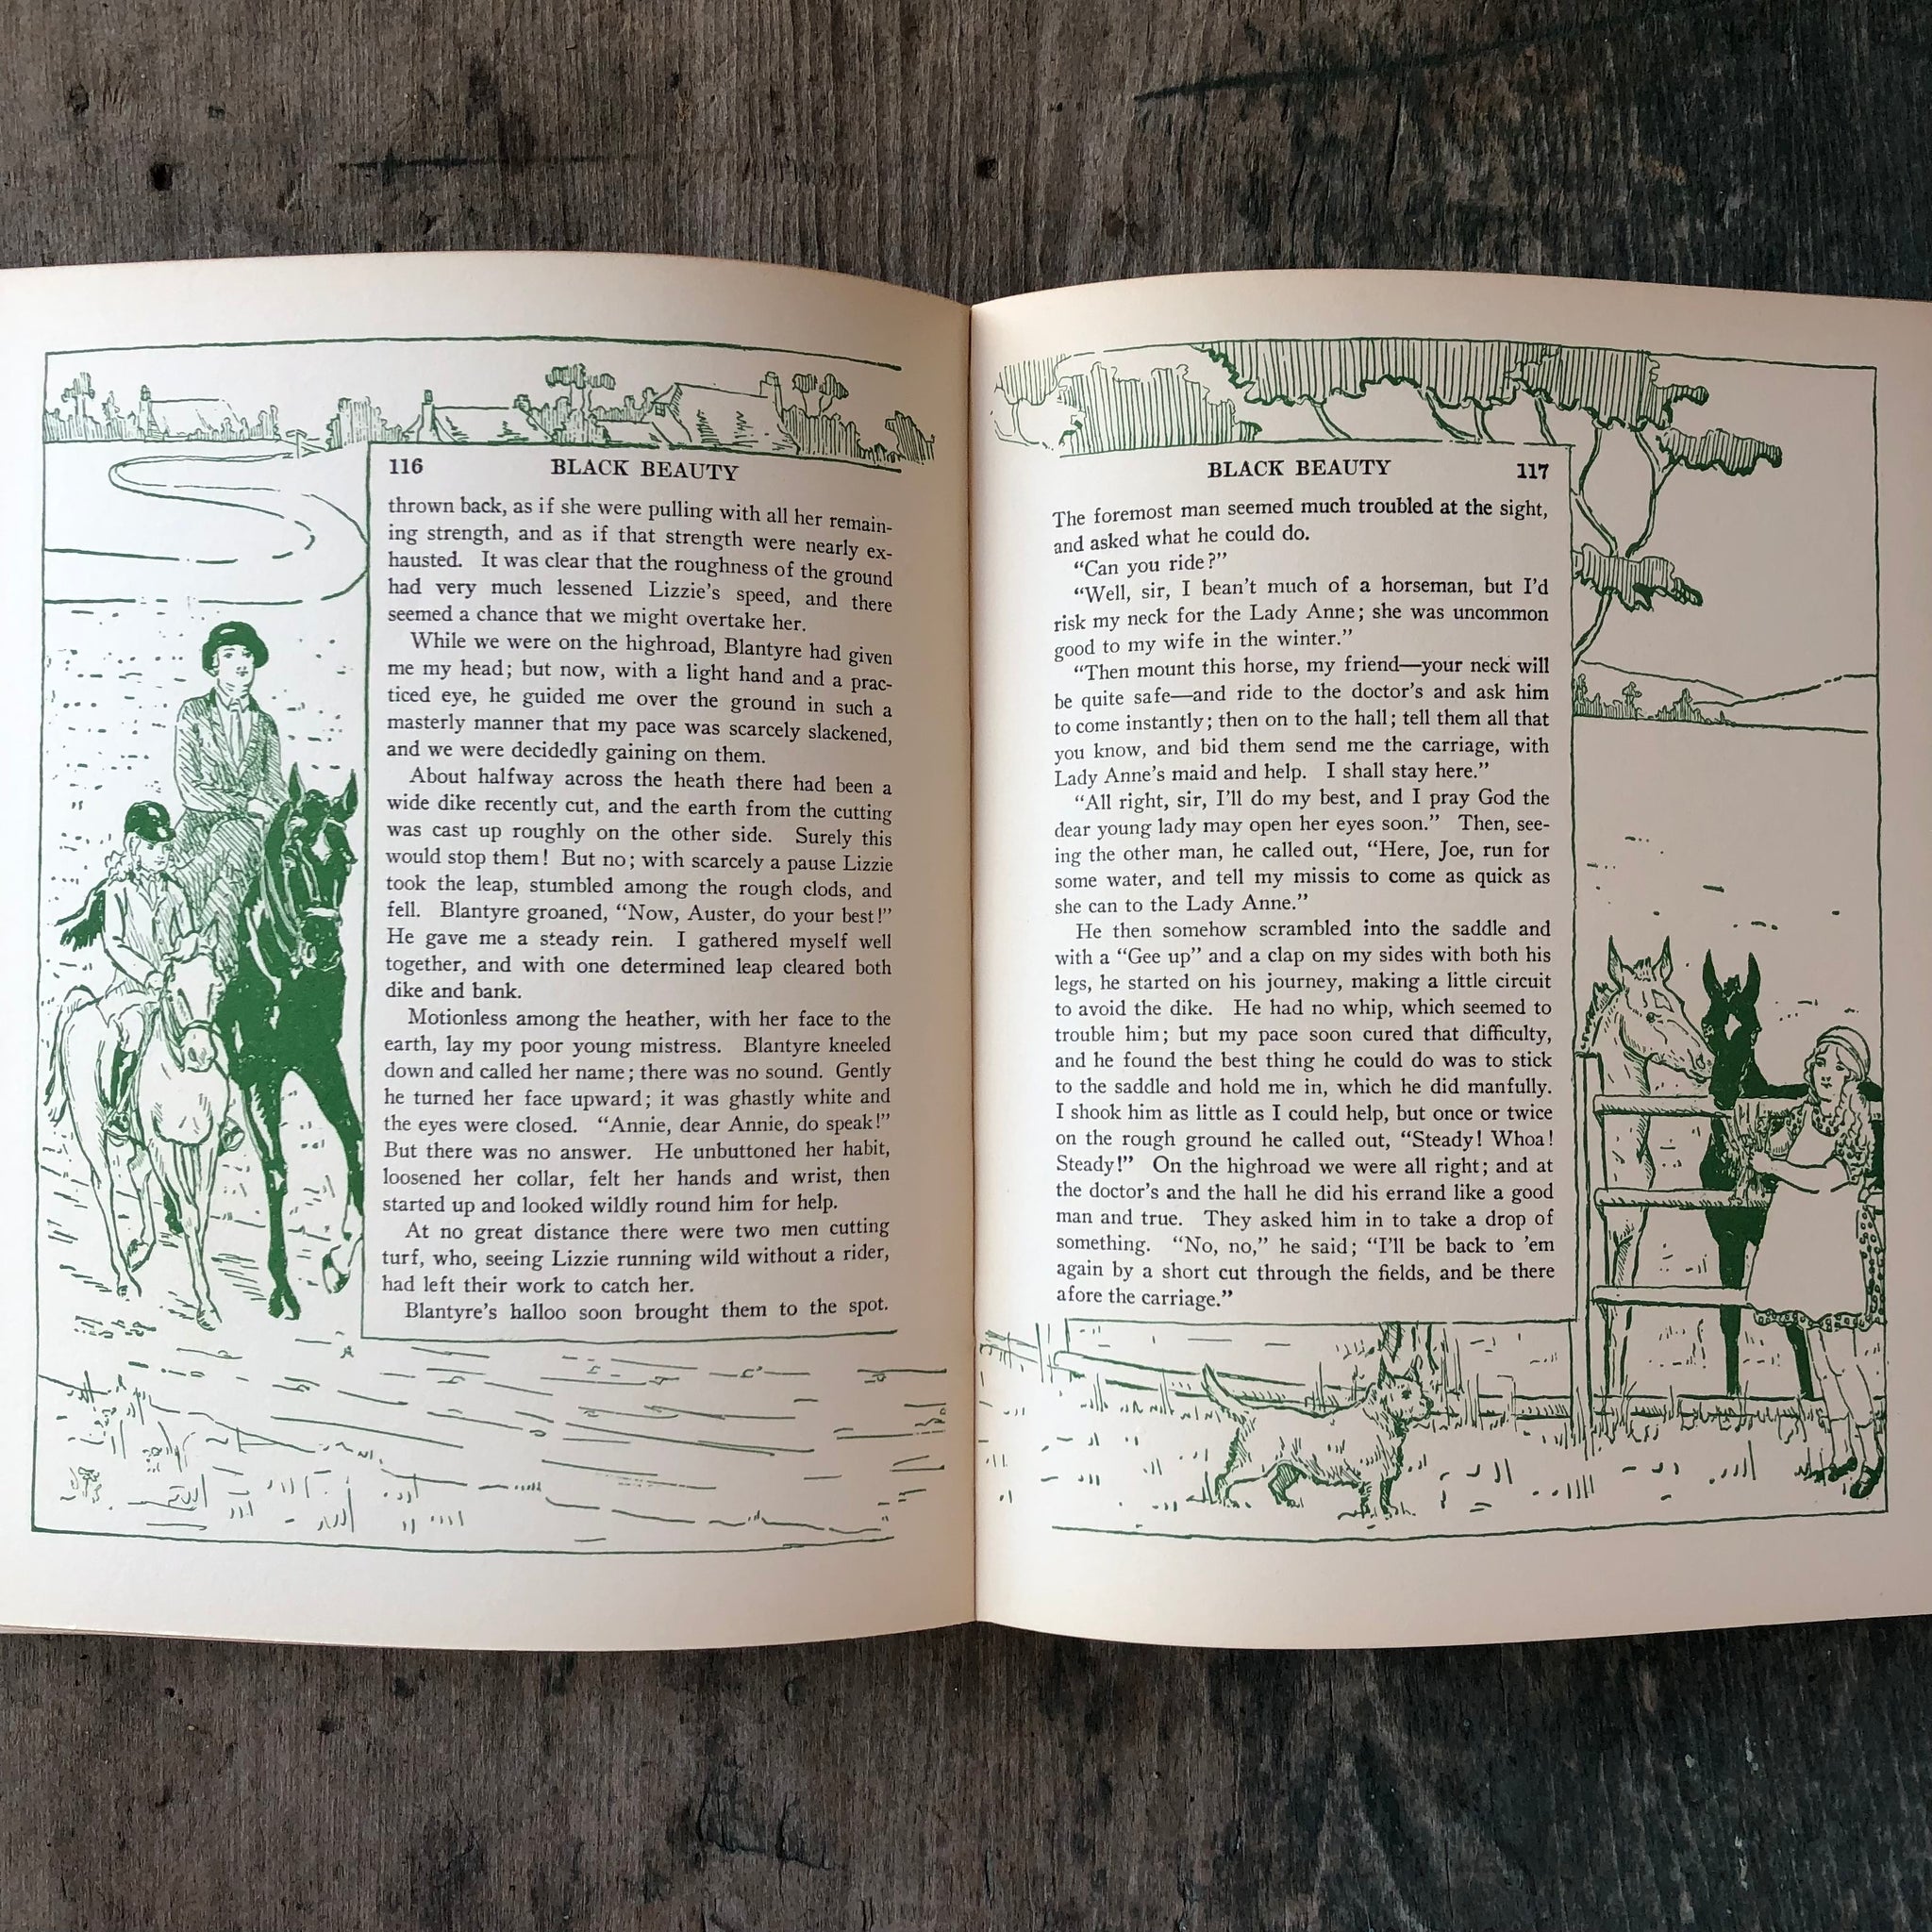 116 BLACK BEAUTY
thrown back, as if she were pulling with all her remain-
ing strength, and as if that strength were nearly ex-
hausted. It was clear that the roughness of the ground
had very much lessened Lizzie's speed, and there
seemed a chance that we might overtake her.
While we were on the highroad, Blantyre had given
me my head; but now, with a light hand and a prac-
ticed eye, he guided me over the ground in such a
masterly manner that my pace was scarcely slackened,
and we were decidedly gaining on them.
About halfway across the heath there had been a
wide dike recently cut, and the earth from the cutting
was cast up roughly on the other side. Surely this
would stop them! But no; with scarcely a pause Lizzie
took the leap, stumbled among the rough clods, and
fell. Blantyre groaned, “Now, Auster, do your best!”
He gave me a steady rein. I gathered myself well
together, and with one determined leap cleared both
dike and bank.
Motionless among the heather, with her face to the
earth, lay my poor young mistress. Blantyre kneeled
down and called her name; there was no sound. Gently
he turned her face upward; it was ghastly white and
the eyes were closed. “Annie, dear Annie, do speak!”
But there was no answer. He unbuttoned her habit,
loosened her collar, felt her hands and wrist, then
started up and looked wildly round him for help.
At no great distance there were two men cutting
turf, who, seeing Lizzie running wild without a rider,
had left their work to catch her.
Blantyre's halloo soon brought them to the spot.
BLACK BEAUTY 117
The foremost man seemed much troubled at the sight,
and asked what he could do.
“Can you ride?”
“Well, sir, I bean't much of a horseman, but I'd
risk my neck for the Lady Anne; she was uncommon
good to my wife in the winter.”
“Then mount this horse, my friend—your neck will
be quite safe—and ride to the doctor's and ask him
to come instantly; then on to the hall; tell them all that
you know, and bid them send me the carriage, with
Lady Anne's maid and help. I shall stay here.”
“All right, sir, I'll do my best, and I pray God the
dear young lady may open her eyes soon.” Then, see-
ing the other man, he called out, “Here, Joe, run for
some water, and tell my missis to come as quick as
she can to the Lady Anne.”
He then somehow scrambled into the saddle and
with a “Gee up” and a clap on my sides with both his
legs, he started on his journey, making a little circuit
to avoid the dike. He had no whip, which seemed to
trouble him; but my pace soon cured that difficulty,
and he found the best thing he could do was to stick
to the saddle and hold me in, which he did manfully.
I shook him as little as I could help, but once or twice
on the rough ground he called out, “Steady! Whoa!
Steady!” On the highroad we were all right; and at
the doctor's and the hall he did his errand like a good
man and true. They asked him in to take a drop of
something. “No, no,” he said; “I'll be back to 'em
again by a short cut through the fields, and be there
afore the carriage.”